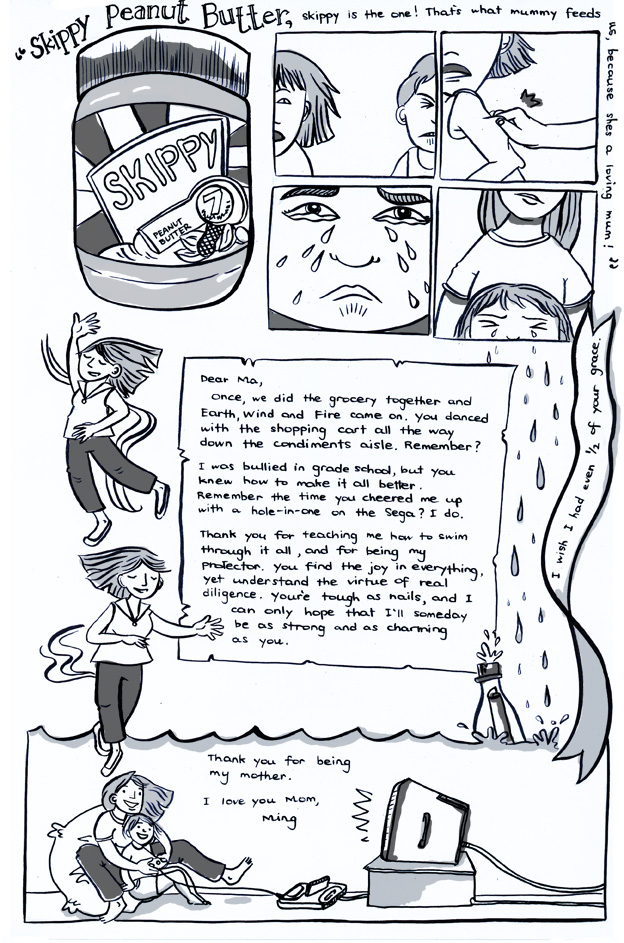 "Skippy Peanut Butter, skippy is the one! That's what mummy feeds
us, because shes a loving mum!"
SKIPPY
PEANUT
BUTTER
Dear Ma,
Once, we did the grocery together and
Earth, Wind and Fire came on. You danced
with the shopping cart all the way
down the condiments aisle. Remember?
I was bullied in grade school, but you
knew how to make it all better.
Remember the time you cheered me up
with a hole-in-one on the Sega? I do.
Thank you for teaching me how to swim
through it all, and for being my
protector. You find the joy in everything,
yet understand the virtue of real
diligence. You're tough as nails, and I
can only hope that I'll someday
be as strong and as charming
as you.
I wish I had even 1/2 of your grace.
Thank you for being
my mother.
I love you Mom,
Ming